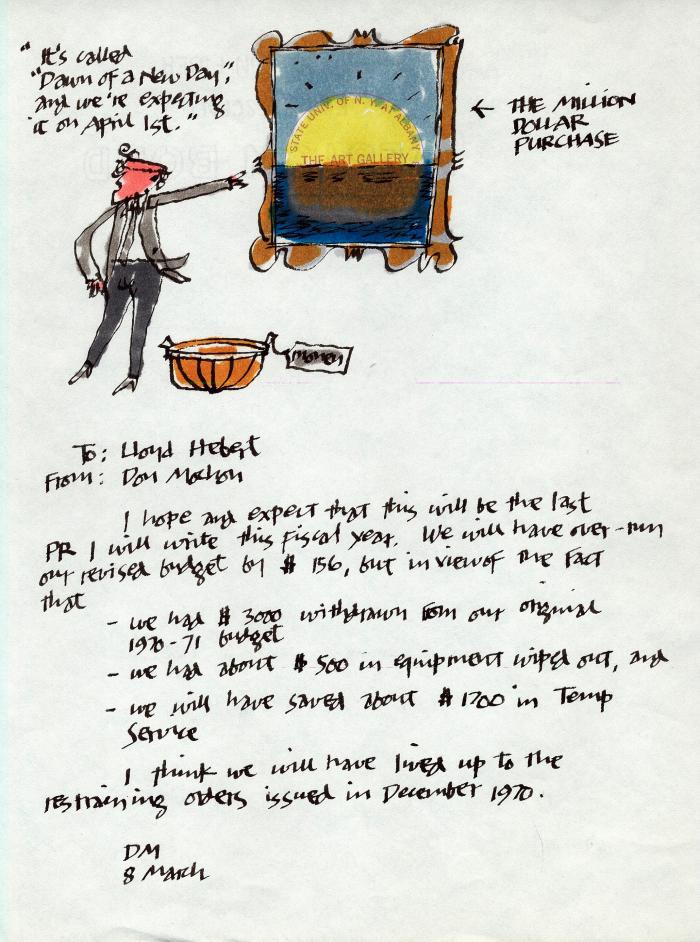 "It's called
"Dawn of a New Day",
and we're expecting
it on April 1st."
STATE UNIV. OF N. Y. AT ALBANY
THE ART GALLERY
← THE MILLION
DOLLAR
PURCHASE
MONEY
To: Lloyd Hebert
From: Don Mochon
I hope and expect that this will be the last
PR I will write this fiscal year. We will have over-run
our revised budget by $156, but in view of the fact
that
- we had $3000 withdrawn from our original
1970-71 budget
- we had about $500 in equipment wiped out, and
- we will have saved about $1700 in Temp
Service
I think we will have lived up to the
restraining orders issued in December 1970.
DM
8 March